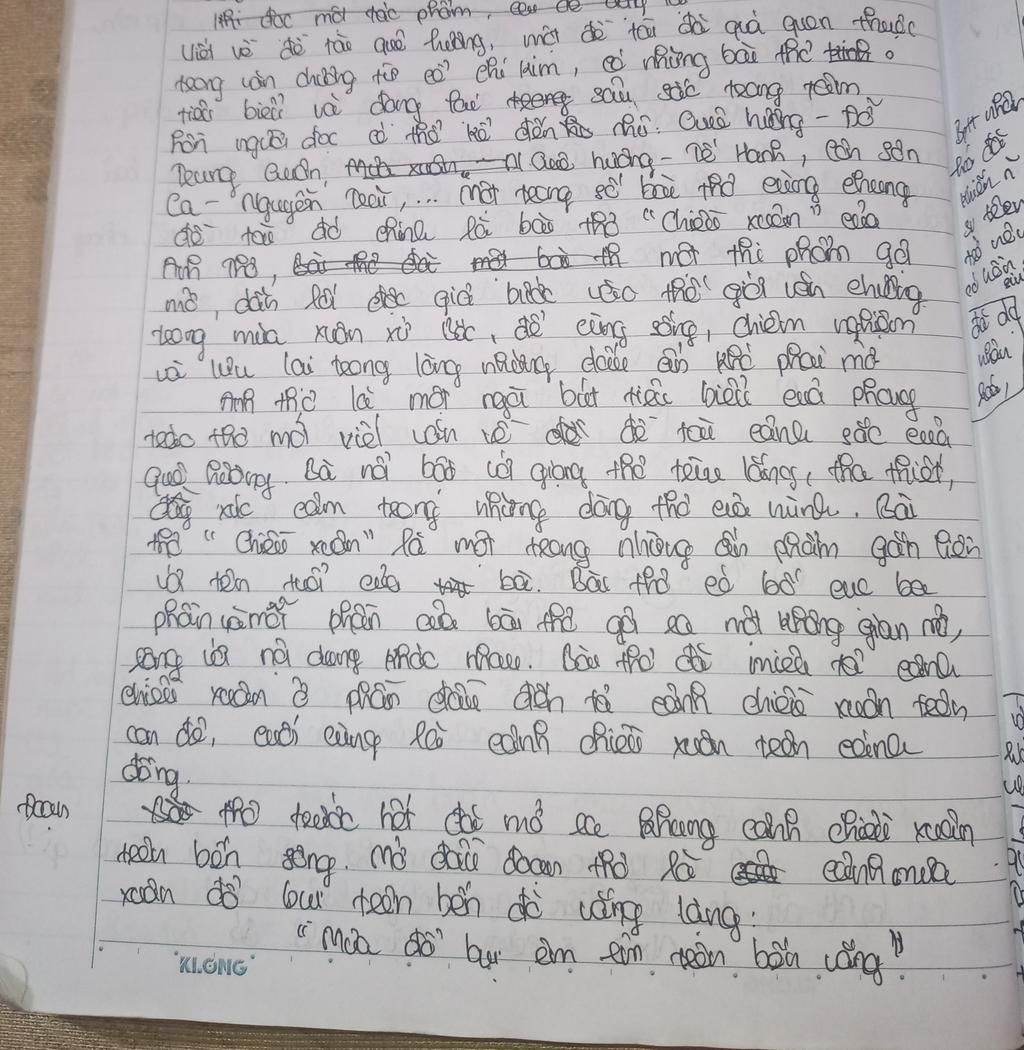 Khi đọc một tác phẩm,
Viết về đề tài quê hương, một đề tài đã quá quen thuộc
trong văn chương từ cổ chí kim, có những bài thơ
tiêu biểu và đang lưu trong sâu sắc trong tâm
hồn người đọc có thể kể đến như: Quê hương - Đỗ
Trung Quân, Mùa xuân Quê hương - Tế Hanh, Côn Sơn
Ca - Nguyễn Trãi,... Một trong số bài thơ cùng chung
đề tài đó chính là bài thơ "Chiều xuân" của
Anh Thơ, bài thơ đã một bài th một thi phẩm gợi
mở, dẫn lối độc giả bước vào thế giới văn chương
trong mùa xuân xứ Bắc, để cùng sống, chiêm nghiệm
và lưu lại trong lòng những dấu ấn khó phai mờ
Anh Thơ là một ngòi bút tiêu biểu của phong
trào thơ mới viết văn về đề tài cảnh sắc của
quê hương. Bà nổi bật với giọng thơ trầm lắng, tha thiết,
xúc cảm trong những dòng thơ của mình. Bài
thơ "Chiều xuân" là một trong những ấn phẩm gắn liền
với tên tuổi của bà. Bài thơ có bố cục ba
phần và mỗi phần của bài thơ gợi ra một không gian mở,
song với nội dung khác nhau. Bài thơ đã miêu tả cảnh
chiều xuân ở phần đầu đến tả cảnh chiều xuân trên
con đê, cuối cùng là cảnh chiều xuân trên cánh
đồng.
Đoạn
Bài thơ trước hết đã mở ra khung cảnh chiều xuân
trên bến sông. Mở đầu đoạn thơ là cảnh mưa
xuân đổ bụi trên bến đò vắng lặng:
"Mưa đổ bụi êm êm trên bến vắng"
KLONG